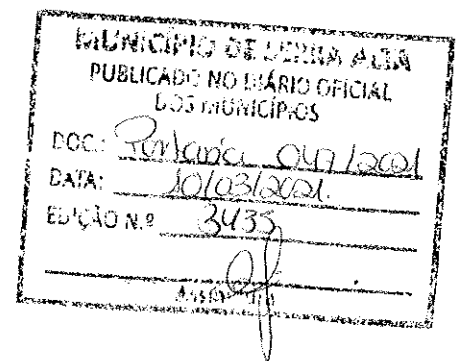 MUNICÍPIO DE SERRA ALTA
PUBLICADO NO DIÁRIO OFICIAL
DOS MUNICÍPIOS
DOC.: Portaria 047/2021
DATA: 10/03/2021.
EDIÇÃO N.º 3435